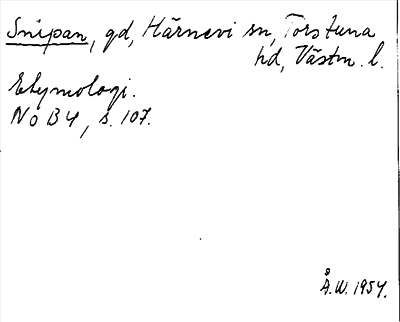 Snipan, gd, Härnevi sn, Torstuna
hd, Västm. l.
Etymologi.
NoB 4, s. 107.
Å.W. 1954.